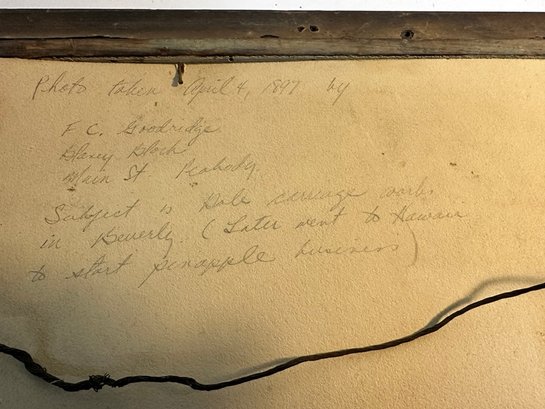 Photo taken April 4, 1897 by
F C. Goodridge
Block
Main St Peabody
Subject is Dole carriage works
in Beverly (Later went to Hawaii
to start pinapple business)